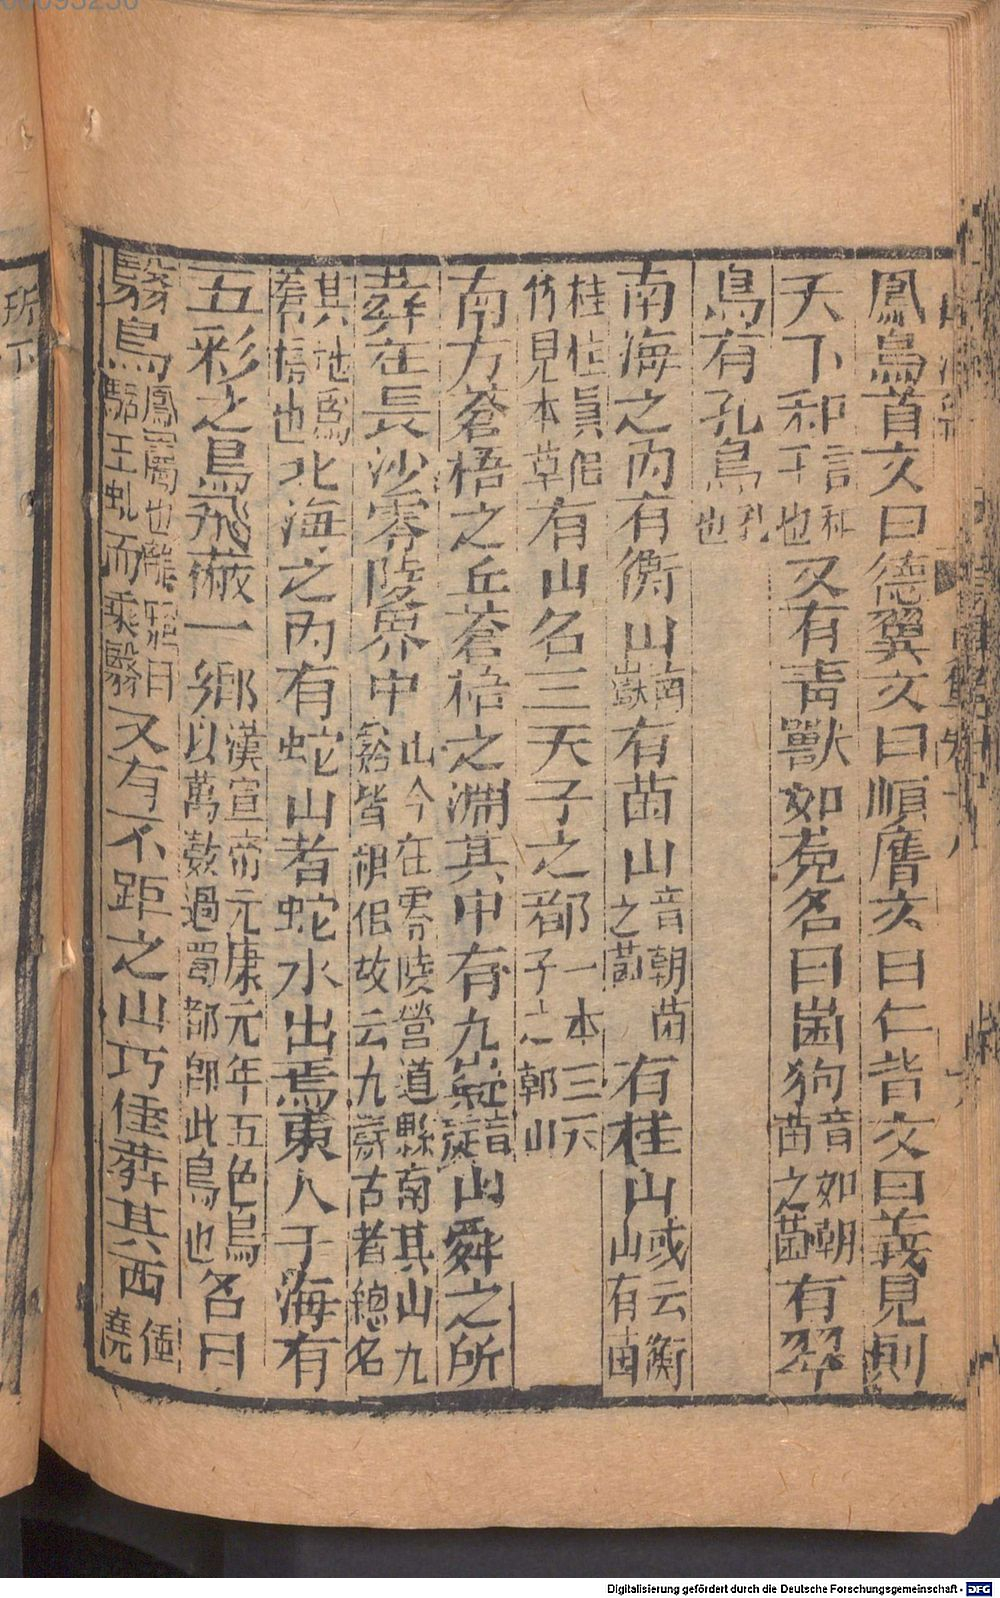 鳳鳥首文曰德翼文曰順膺文曰仁背文曰義見則
天下和言和平也又有青獸如菟名曰𡿺狗音如朝菌之菌有翠
鳥有孔鳥孔也
南海之內有衡山南嶽有菌山音朝菌之菌有桂山或云衡山有菌
桂桂員似竹見本草有山名三天子之都一本三天子之鄣山
南方蒼梧之丘蒼梧之淵其中有九嶷音疑山舜之所
葬在長沙零陵界中山今在零陵營道縣南其山九谿皆相似故云九疑古者總名
其地為蒼梧也北海之內有蛇山者蛇水出焉東入于海有
五彩之鳥飛蔽一鄉漢宣帝元康元年五色鳥以萬數過蜀都即此鳥也名曰
翳鳥鳳屬也離騷曰駟玉虬而乘翳又有不距之山巧倕葬其西倕堯
Digitalisierung gefördert durch die Deutsche Forschungsgemeinschaft - DFG